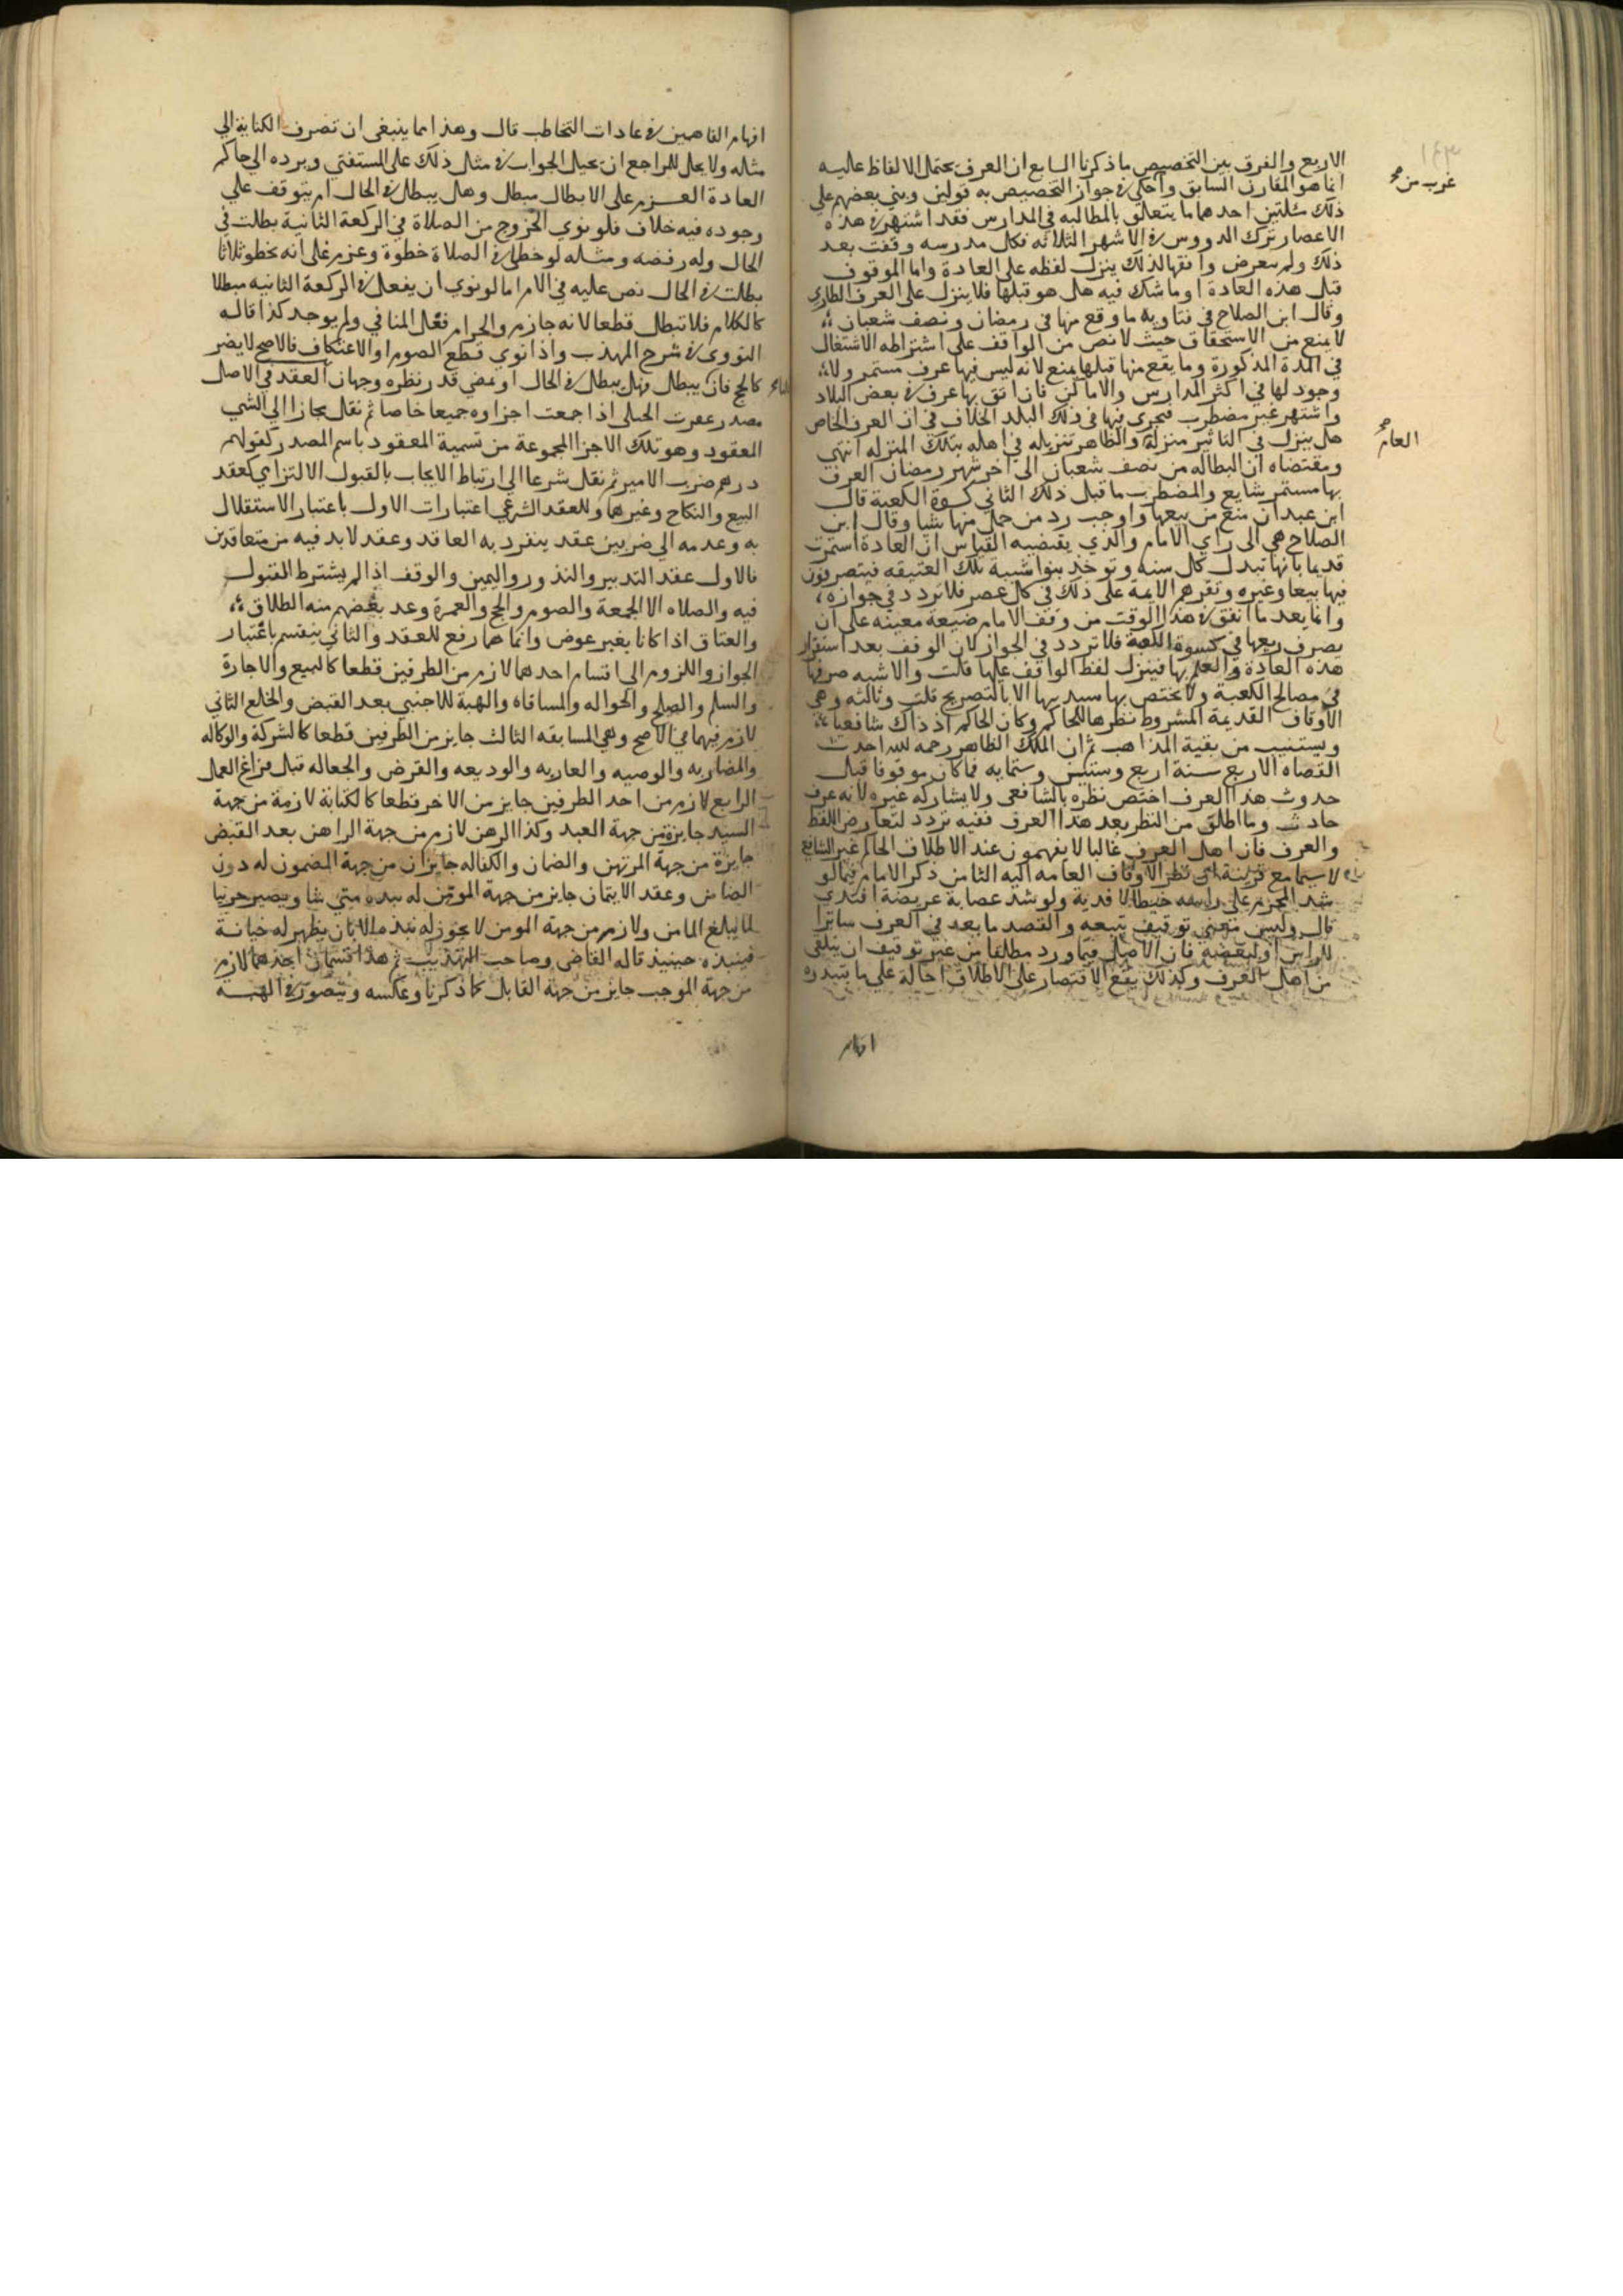 ١٤٣
الاربع والفرق بين التخصيص ما ذكرنا السابع ان العرف يحتمل الالفاظ عليه
غرب من
انما هو المقارن السابق وأحكي في جواز التخصيص به قولين وبني بعضهم علي
ذلك مسلتين احدهما ما يتعلق بالمطالبه في المدارس فقد اشتهر في هذه
الاعصار ترك الدروس في الاشهر الثلاثه فكل مدرسه وقفت بعد
ذلك ولم يتعرض واقفها لذلك ينزل لفظه على العادة واما الموقوف
قبل هذه العادة او ما شك فيه هل هو قبلها فلا ينزل على العرف الطاري
وقال ابن الصلاح في فتاويه ما وقع منها في رمضان ونصف شعبان
لا يمنع من الاستحقاق حيث لا نص من الواقف على اشتراطه الاشتغال
في المدة المذكورة وما يقع منها قبلها يمنع لانه ليس فيها عرف مستمر ولا
وجود لها في اكثر المدارس والاماكن فان اتفق بها عرف في بعض البلاد
واشتهر غير مضطرب فيجري فيها في ذلك البلد الخلاف في ان العرف الخاص
العام
هل ينزل في التاثير منزلة والظاهر تنزيله في اهله بتلك المنزله انتهي
ومقتضاه ان البطاله من نصف شعبان الى اخر شهر رمضان العرف
بها مستمر شايع والمضطرب ما قبل ذلك الثاني كسوة الكعبة قال
ابن عبدان منع من بيعها واوجب رد من حمل منها شيا وقال ابن
الصلاح هي الى راي الامام والذي يقتضيه القياس ان العادة استمرت
قديما بانها تبدل كل سنه وتوخذ بنوا شيبة تلك العتيقه فيتصرفون
فيها بيعا وغيره وتقرهم الايمة على ذلك في كل عصر فلا تردد في جوازه
وانما بعد ما اتفق في هذا الوقت من وقف الامام ضيعة معينه على ان
يصرف ريعها في كسوة الكعبة فلا تردد في الجواز لان الوقف بعد استقرار
هذه العادة والعلم بها فينزل لفظ الواقف عليها قلت والاشبه صرفها
في مصالح الكعبة ولا يختص بها سيدنها الا بالتصريح قلت وثالثه وهي
الاوقاف القديمة المشروط نظرها للحاكم وكان الحاكم اذ ذاك شافعيا
ويستنيب من بقية المذاهب ثم ان الملك الظاهر رحمه لله احدث
القضاه الاربع سنة اربع وستين وستمايه فما كان موقوفا قبل
حدوث هذا العرف اختص نظره بالشافعي ولا يشاركه غيره لانه عرف
حادث وما اطلق من النظر بعد هذا العرف ففيه تردد لتعارض اللفظ
والعرف فان اهل العرف غالبا لا يفهمون عند الاطلاق الحاكم غير الشافعي
لا سيما مع قرينة ان نظر الاوقاف العامه اليه الثامن ذكر الامام فيما لو
شد المحرم على راسه خيطا لا فدية ولو شد عصابة عريضة افتدي
قال وليس معني توقيف يتبعه والقصد ما يعد في العرف ساترا
للراس او لبعضه فان الاصل فيما ورد مطلقا من غير توقيف ان يتلقى
من اهل العرف وكذلك يقع الاقتصار على الاطلاق احالة علي ما يبتدره
افهام
افهام الفاهمين في عادات التخاطب قال وهذا مما ينبغي ان تصرف الكناية الي
مثله ولا يحل للمراجع ان يحيل الجواب في مثل ذلك على المستفتي ويرده الي حاكم
العادة العزم على الابطال مبطل وهل يبطل في الحال ام يتوقف علي
وجوده فيه خلاف فلو نوي الخروج من الصلاة في الركعة الثانية بطلت في
الحال وله رفضه ومثله لو خطا في الصلاة خطوة وعزم على انه يخطو ثلاثا
بطلت في الحال نص عليه في الام اما لو نوي ان يفعل في الركعة الثانيه مبطلا
كالكلام فلا تبطل قطعا لانه جازم والحرام فعل المنافي ولم يوجد كذا قاله
النووي في شرح المهذب واذا نوي قطع الصوم او الاعتكاف فالاصح لا يضر
كالحج فان يبطل وهل يبطل في الحال او بمضي قدر نظره وجهان العقد في الاصل
مصدر عقدت الحبلى اذا جمعت اجزاوه جميعا خاصا ثم نقل مجازا الي الشي
المعقود وهو تلك الاجزا المجموعة من تسمية المعقود باسم المصدر كقولهم
درهم ضرب الامير ثم نقل شرعا الي ارتباط الايجاب بالقبول الالتزامي كعقد
البيع والنكاح وغيرهما وللعقد الشرعي اعتبارات الاول باعتبار الاستقلال
به وعدمه الي ضربين عقد ينفرد به العاقد وعقد لا بد فيه من متعاقدين
فالاول عقد التدبير والنذور واليمين والوقف اذا لم يشترط القبول
فيه والصلاه الا الجمعة والصوم والحج والعمرة وعد بعضهم منه الطلاق
والعتاق اذا كانا بغير عوض وانما هما رفع للعقد والثاني ينقسم باعتبار
الجواز واللزوم الي اقسام احدهما لازم من الطرفين قطعا كالبيع والاجارة
والسلم والصلح والحواله والمساقاه والهبة للاجنبي بعد القبض والخلع الثاني
لازم فيهما في الاصح وهي المسابقه الثالث جايز من الطرفين قطعا كالشركة والوكاله
والمضاربه والوصيه والعاريه والوديعه والقرض والجعاله قبل فراغ العمل
الرابع لازم من احد الطرفين جايز من الاخر قطعا كالكتابة لازمة من جهة
السيد جايزة من جهة العبد وكذا الرهن لازم من جهة الراهن بعد القبض
جايزة من جهة المرتهن والضمان والكفاله جايزان من جهة المضمون له دون
الضامن وعقد الايتمان جايز من جهة المومن له ينبذه متي شا ويصير حربيا
لما يبلغ المامن ولازم من جهة المومن لا يجوز له نبذه الا بان يظهر له خيانة
فينبذه حينيذ قاله القاضي وصاحب التهذيب ثم هذا قسمان احدهما لازم
من جهة الموجب جايز من جهة القابل كما ذكرنا وعكسه ويتصور في الهبه